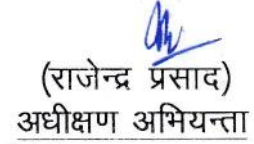 (राजेन्द्र प्रसाद)
अधीक्षण अभियन्ता